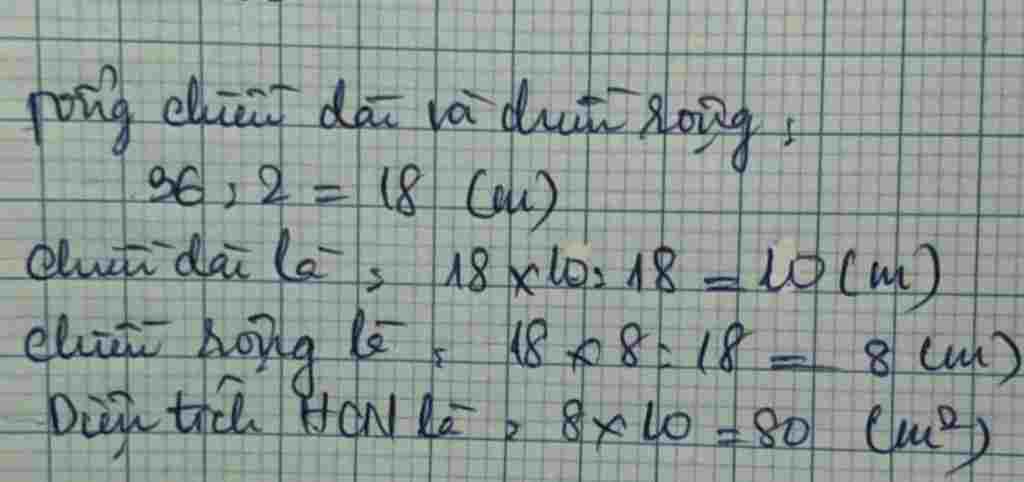 Tổng chiều dài và chiều rộng :
36 : 2 = 18 (m)
chiều dài là : 18 x 10 : 18 = 10 (m)
chiều rộng là : 18 x 8 : 18 = 8 (m)
Diện tích HCN là : 8 x 10 = 80 (m²)